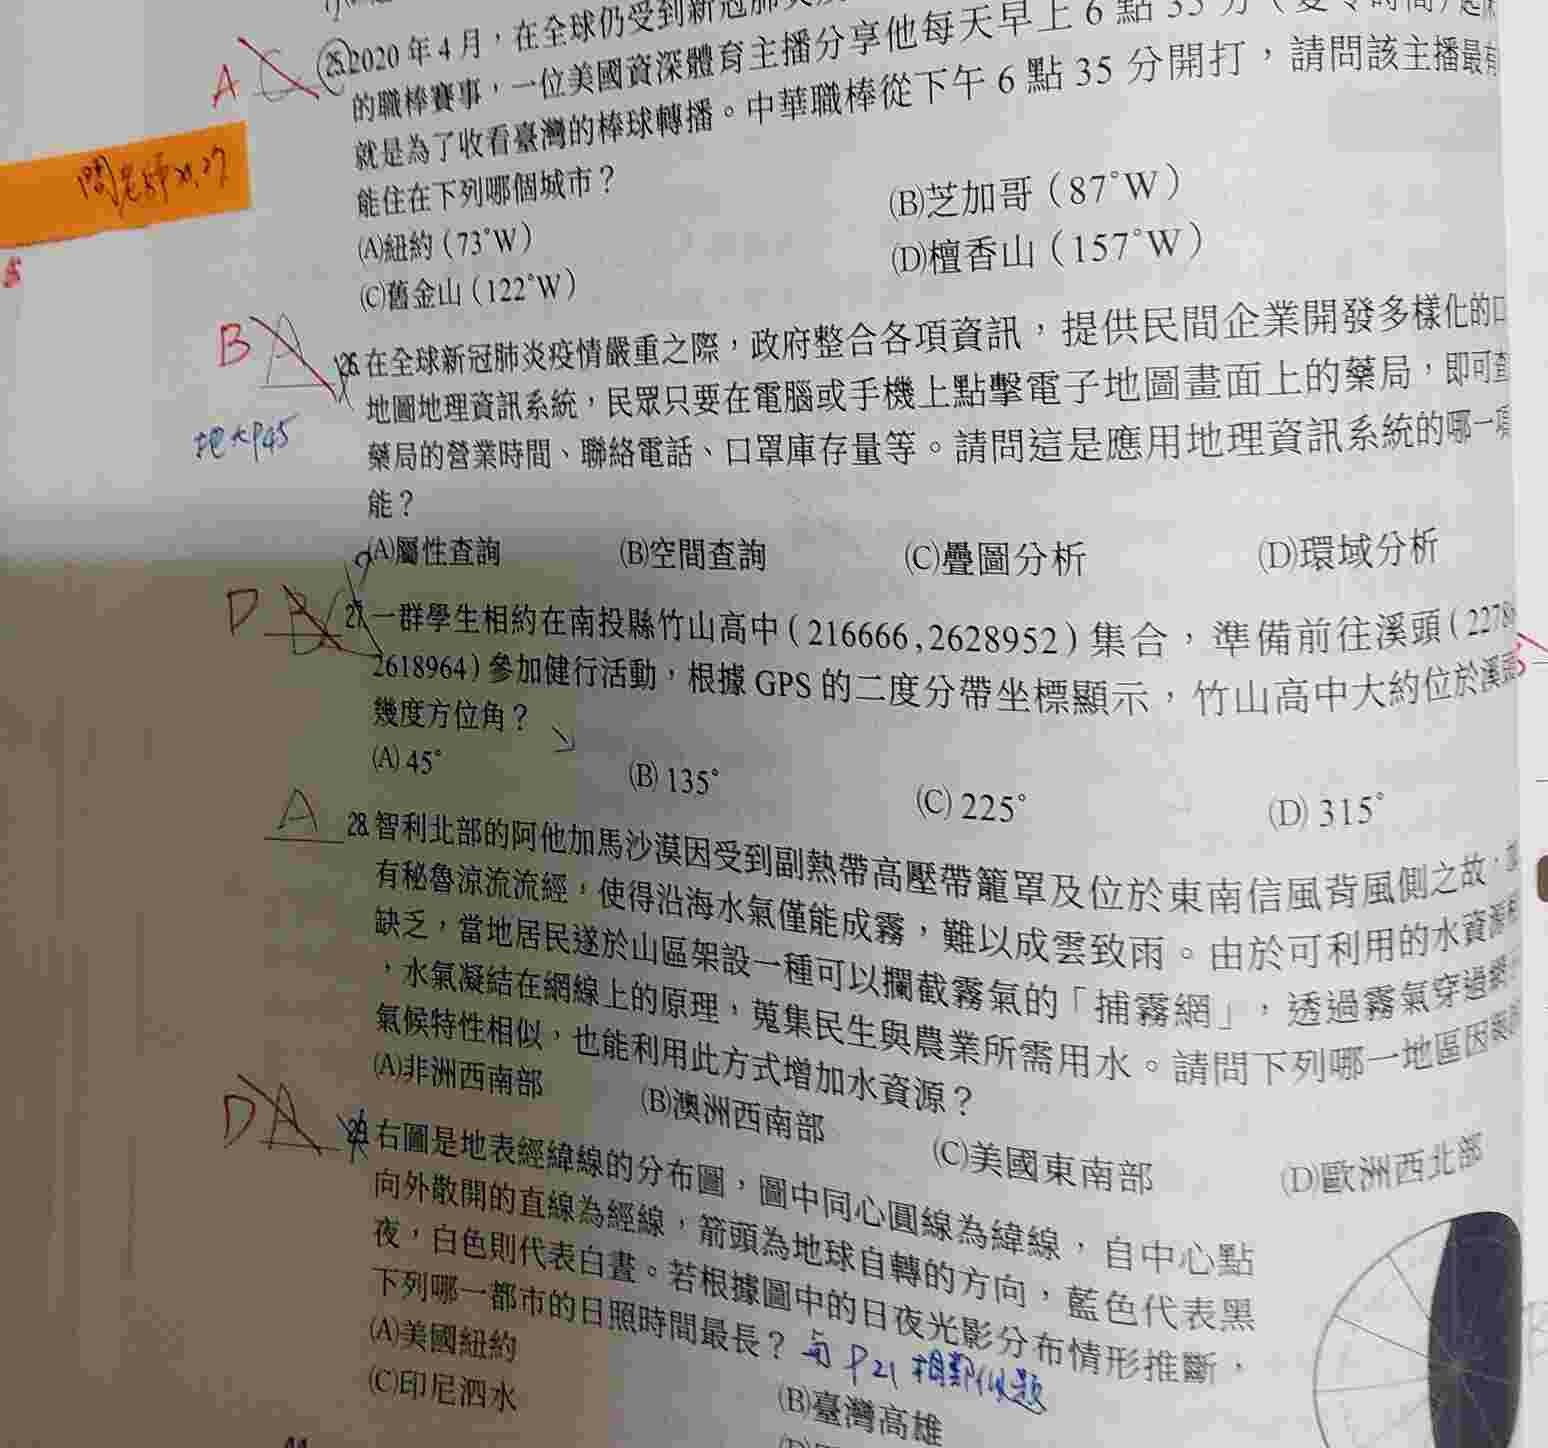 A C
25.2020年4月，在全球仍受到新冠肺炎
的職棒賽事，一位美國資深體育主播分享他每天早上6點35分（夏令時間）起床
就是為了收看臺灣的棒球轉播。中華職棒從下午6點35分開打，請問該主播最有
能住在下列哪個城市？
(A)紐約（73°W）
(B)芝加哥（87°W）
(C)舊金山（122°W）
(D)檀香山（157°W）
問老師25,27
B A
26.在全球新冠肺炎疫情嚴重之際，政府整合各項資訊，提供民間企業開發多樣化的口
地圖地理資訊系統，民眾只要在電腦或手機上點擊電子地圖畫面上的藥局，即可查
藥局的營業時間、聯絡電話、口罩庫存量等。請問這是應用地理資訊系統的哪一項
能？
地大P45
(A)屬性查詢 (B)空間查詢 (C)疊圖分析 (D)環域分析
D B
27.一群學生相約在南投縣竹山高中（216666,2628952）集合，準備前往溪頭（2278
2618964）參加健行活動，根據GPS的二度分帶坐標顯示，竹山高中大約位於溪頭
幾度方位角？
(A) 45° (B) 135° (C) 225° (D) 315°
A
28.智利北部的阿他加馬沙漠因受到副熱帶高壓帶籠罩及位於東南信風背風側之故，加
有秘魯涼流流經，使得沿海水氣僅能成霧，難以成雲致雨。由於可利用的水資源
缺乏，當地居民遂於山區架設一種可以攔截霧氣的「捕霧網」，透過霧氣穿過網
，水氣凝結在網線上的原理，蒐集民生與農業所需用水。請問下列哪一地區因
氣候特性相似，也能利用此方式增加水資源？
(A)非洲西南部 (B)澳洲西南部 (C)美國東南部 (D)歐洲西北部
D A
29.右圖是地表經緯線的分布圖，圖中同心圓線為緯線，自中心點
向外散開的直線為經線，箭頭為地球自轉的方向，藍色代表黑
夜，白色則代表白晝。若根據圖中的日夜光影分布情形推斷，
下列哪一都市的日照時間最長？
(A)美國紐約
(B)臺灣高雄
(C)印尼泗水